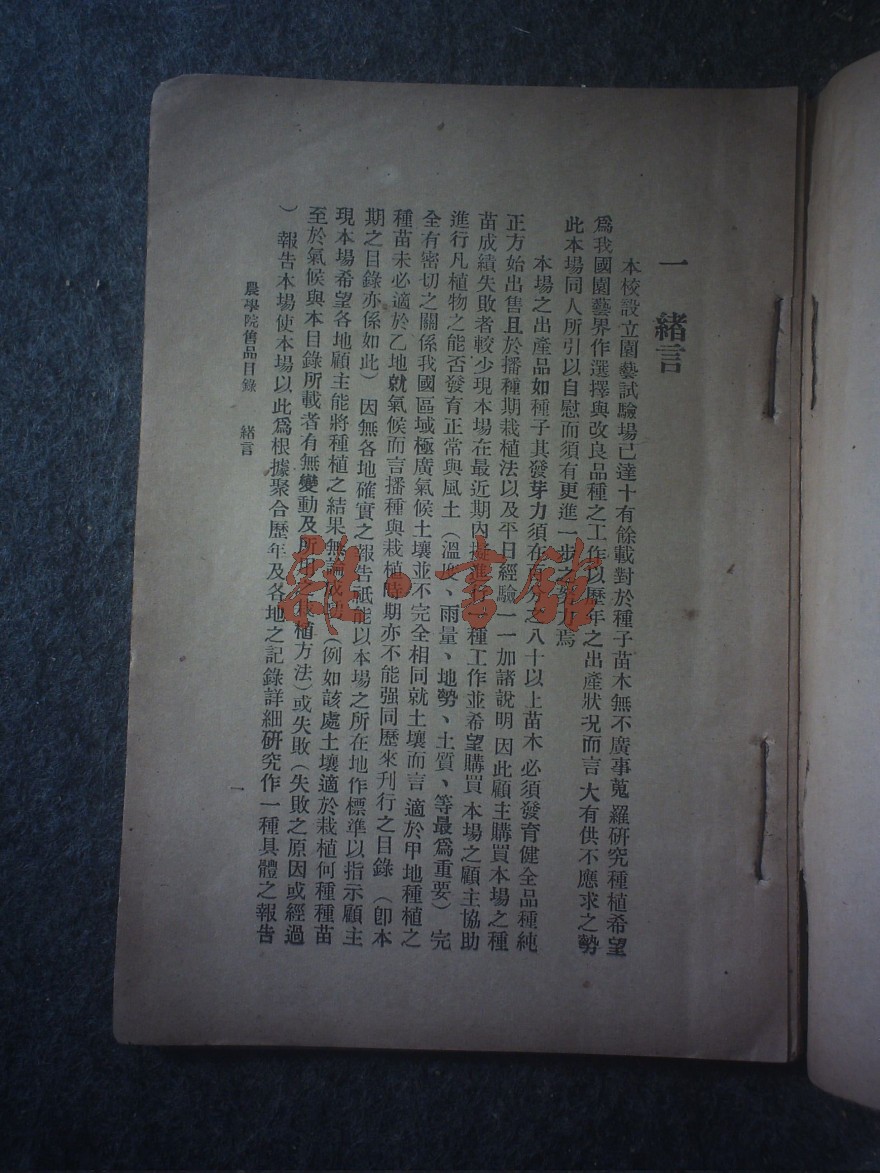 一 緒言
本校設立園藝試驗場已達十有餘載對於種子苗木無不廣事蒐羅研究種植希望
爲我國園藝界作選擇與改良品種之工作以歷年之出產狀況而言大有供不應求之勢
此本場同人所引以自慰而須有更進一步之努力焉
本場之出產品如種子其發芽力須在百分之八十以上苗木必須發育健全品種純
正方始出售且於播種期栽植法以及平日經驗一一加諸說明因此顧主購買本場之種
苗成績失敗者較少現本場在最近期內擬進行一種工作並希望購買本場之顧主協助
進行凡植物之能否發育正常與風土(溫度、雨量、地勢、土質、等最爲重要)完
全有密切之關係我國區域極廣氣候土壤並不完全相同就土壤而言適於甲地種植之
種苗未必適於乙地就氣候而言播種與栽植時期亦不能强同歷來刊行之目錄(卽本
期之目錄亦係如此)因無各地確實之報告祇能以本場之所在地作標準以指示顧主
現本場希望各地顧主能將種植之結果無論成功(例如該處土壤適於栽植何種種苗
至於氣候與本目錄所載者有無變動及所用之栽植方法)或失敗(失敗之原因或經過
)報告本場使本場以此爲根據聚合歷年及各地之記錄詳細研究作一種具體之報告
農學院售品目錄 緒言
一
雜·書館